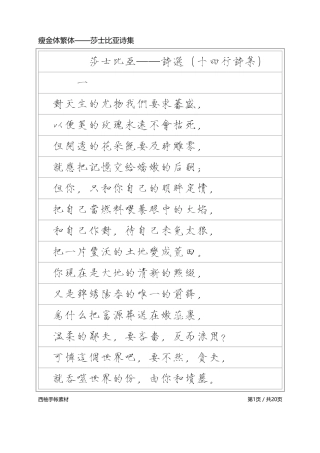 瘦金体繁体——莎士比亚诗集
莎士比亞——詩選（十四行詩集）
一
對天生的尤物我們要求蕃盛，
以便美的玫瑰永遠不會枯死，
但開透的花朵既要及時雕零，
就應把記憶交給嬌嫩的后嗣；
但你，只和你自己的明眸定情，
把自己當燃料喂養眼中的火焰，
和自己作對，待自己未免太狠，
把一片豐沃的土地變成荒田。
你現在是大地的清新的點綴，
又是錦綉陽春的唯一的前鋒，
爲什么把富源葬送在嫩蕊裏，
温柔的鄙夫，要吝嗇，反而浪用？
可憐這個世界吧，要不然，貪夫，
就吞噬世界的份，由你和墳墓。
西袖字帖素材
第1页 / 共20页